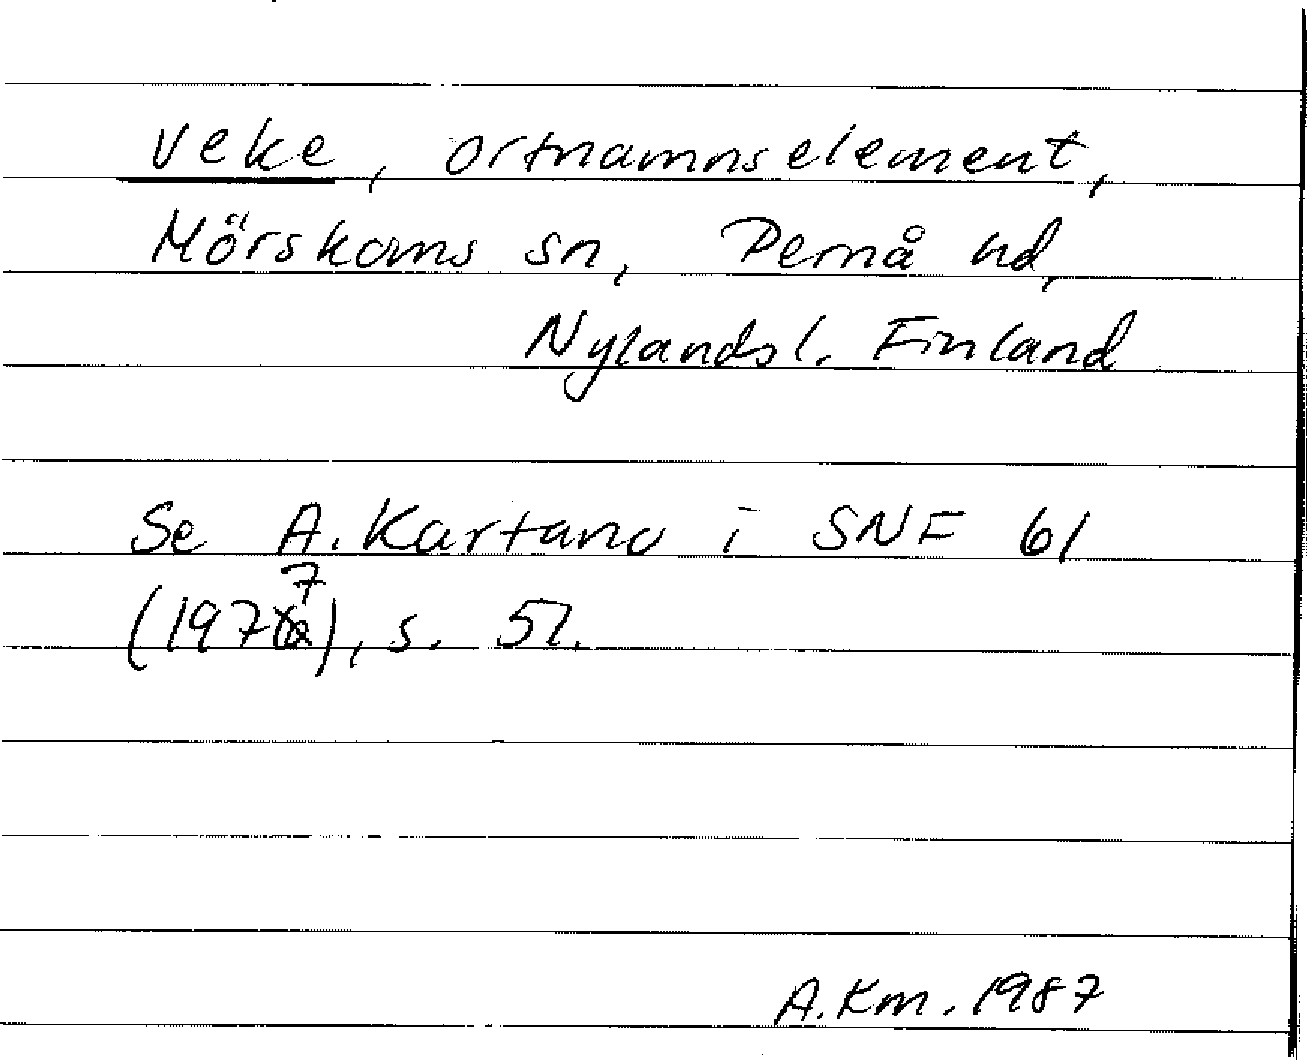 veke, ortnamnselement,
Mörskoms sn, Pernå hd,
Nylandsl. Finland
Se A. Kartano i SNF 61
(1977), s. 52.
A.Km. 1987